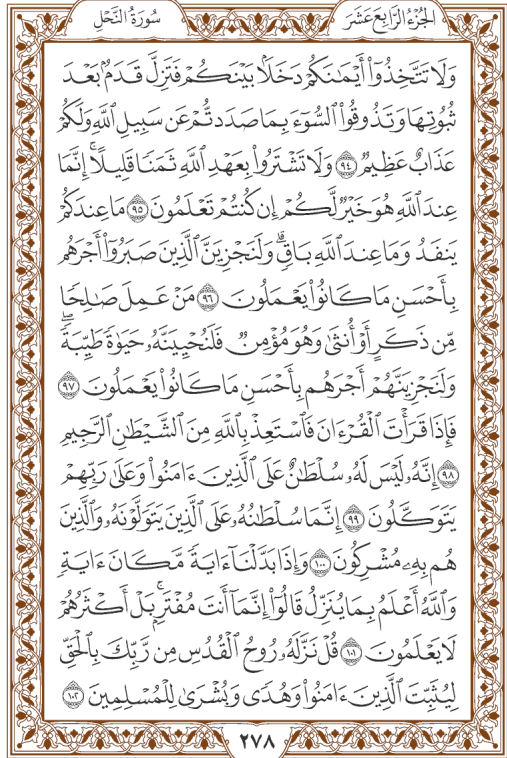 الجُزْءُ الرَّابِعَ عَشَرَ
سُورَةُ النَّحْلِ
وَلَا تَتَّخِذُوٓا۟ أَيْمَـٰنَكُمْ دَخَلًۢا بَيْنَكُمْ فَتَزِلَّ قَدَمٌۢ بَعْدَ
ثُبُوتِهَا وَتَذُوقُوا۟ ٱلسُّوٓءَ بِمَا صَدَدتُّمْ عَن سَبِيلِ ٱللَّهِ وَلَكُمْ
عَذَابٌ عَظِيمٌ ٩٤ وَلَا تَشْتَرُوا۟ بِعَهْدِ ٱللَّهِ ثَمَنًا قَلِيلًا ۚ إِنَّمَا
عِندَ ٱللَّهِ هُوَ خَيْرٌ لَّكُمْ إِن كُنتُمْ تَعْلَمُونَ ٩٥ مَا عِندَكُمْ
يَنفَدُ وَمَا عِندَ ٱللَّهِ بَاقٍ ۗ وَلَنَجْزِيَنَّ ٱلَّذِينَ صَبَرُوٓا۟ أَجْرَهُم
بِأَحْسَنِ مَا كَانُوا۟ يَعْمَلُونَ ٩٦ مَنْ عَمِلَ صَـٰلِحًا
مِّن ذَكَرٍ أَوْ أُنثَىٰ وَهُوَ مُؤْمِنٌ فَلَنُحْيِيَنَّهُۥ حَيَوٰةً طَيِّبَةً ۖ
وَلَنَجْزِيَنَّهُمْ أَجْرَهُم بِأَحْسَنِ مَا كَانُوا۟ يَعْمَلُونَ ٩٧
فَإِذَا قَرَأْتَ ٱلْقُرْءَانَ فَٱسْتَعِذْ بِٱللَّهِ مِنَ ٱلشَّيْطَـٰنِ ٱلرَّجِيمِ
٩٨ إِنَّهُۥ لَيْسَ لَهُۥ سُلْطَـٰنٌ عَلَى ٱلَّذِينَ ءَامَنُوا۟ وَعَلَىٰ رَبِّهِمْ
يَتَوَكَّلُونَ ٩٩ إِنَّمَا سُلْطَـٰنُهُۥ عَلَى ٱلَّذِينَ يَتَوَلَّوْنَهُۥ وَٱلَّذِينَ
هُم بِهِۦ مُشْرِكُونَ ١٠٠ وَإِذَا بَدَّلْنَآ ءَايَةً مَّكَانَ ءَايَةٍ ۙ
وَٱللَّهُ أَعْلَمُ بِمَا يُنَزِّلُ قَالُوٓا۟ إِنَّمَآ أَنتَ مُفْتَرٍۭ ۚ بَلْ أَكْثَرُهُمْ
لَا يَعْلَمُونَ ١٠١ قُلْ نَزَّلَهُۥ رُوحُ ٱلْقُدُسِ مِن رَّبِّكَ بِٱلْحَقِّ
لِيُثَبِّتَ ٱلَّذِينَ ءَامَنُوا۟ وَهُدًى وَبُشْرَىٰ لِلْمُسْلِمِينَ ١٠٢
٢٧٨